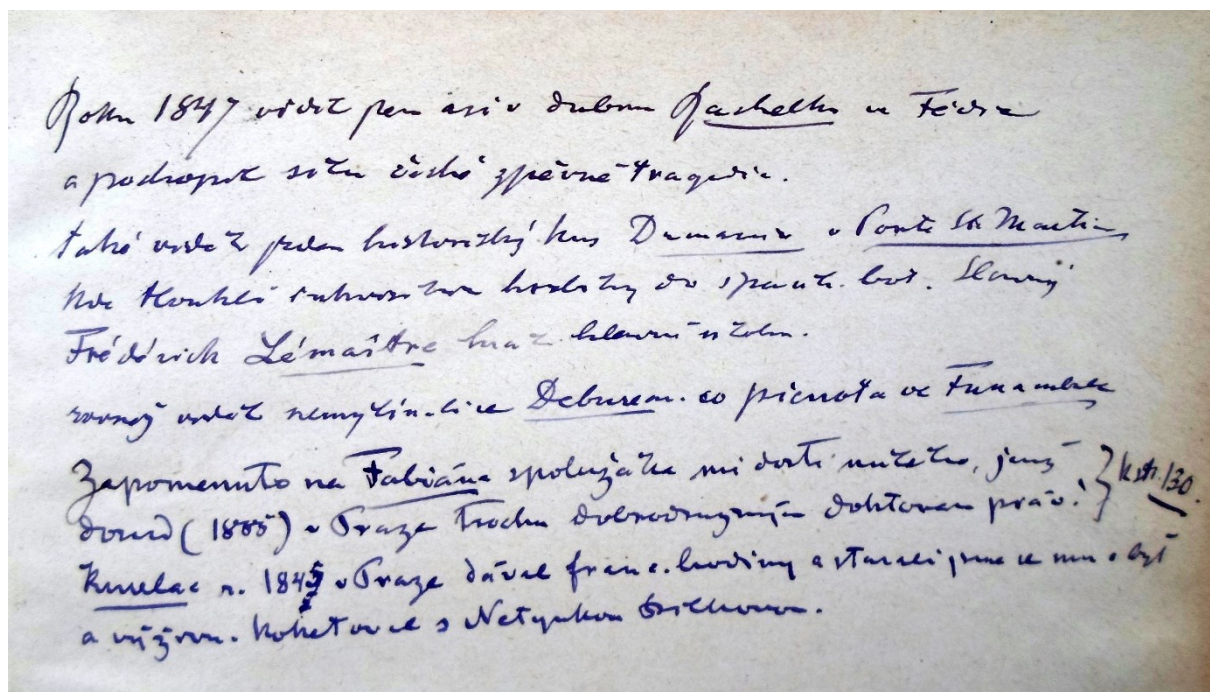 Roku 1847 viděl jsem asi v dubnu Rachelku ve Fédře
a podropit sílu české zpěvné tragedie.
také viděl jeden historický kus Dumasův v Porte St. Martin
kde tloukli hodiny do spoust. bot. Slavný
Frédérick Lémaître hrál hlavní úlohu.
rovněž viděl Debureau co pierrota ve Funambule
Zapomenuto na Fabiána spolužáka mi dosti milého, jenž
dosud (1885) v Praze trochu dobrodružným doktorem práv! } k str. 130.
Kmelac r. 1845 v Praze dával franc. hodiny a starali jsme se mu o byt
a výživu. Koketoval s Netynkou